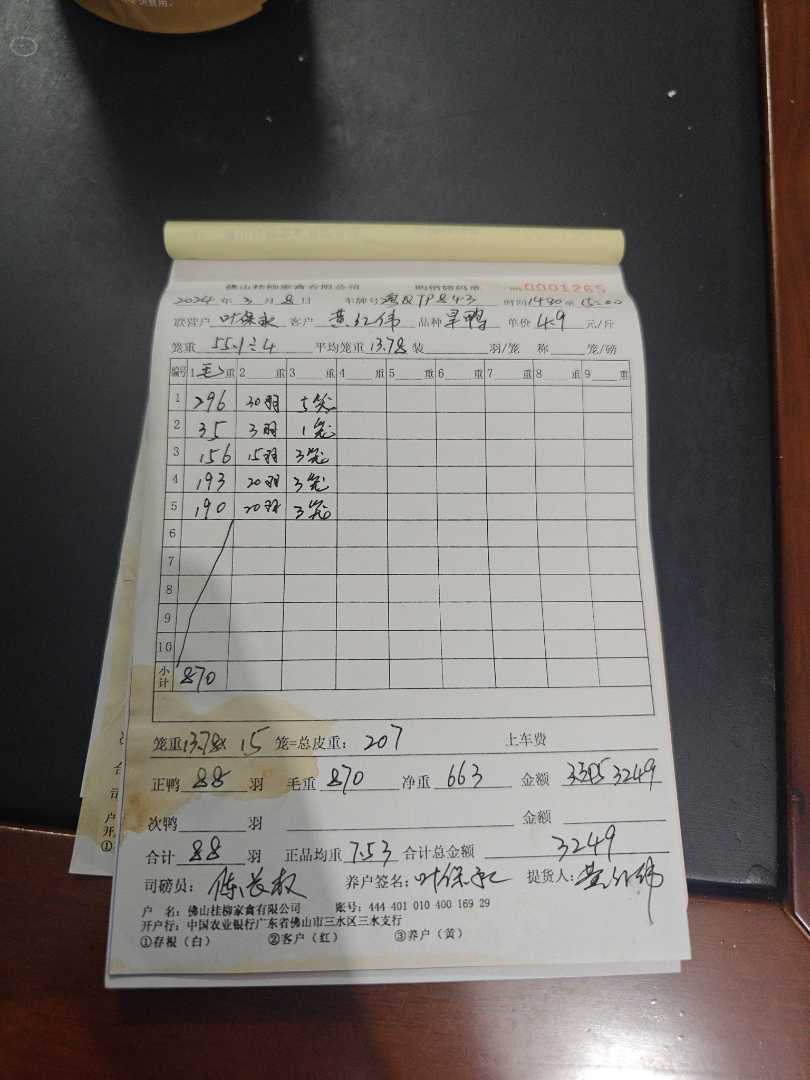 佛山桂柳家禽有限公司 购销磅码单 0001265
2024 年 3 月 8 日 车牌号 时间 1430 至 15:00
联营户 叶保永 客户 黄红伟 品种 旱鸭 单价 4.9 元/斤
笼重 55.1÷4 平均笼重 13.78 装 羽/笼 称 笼/磅
编号 1 毛 重 2 重 3 重 4 重 5 重 6 重 7 重 8 重 9 重
1 296 30羽 5笼
2 35 3羽 1笼
3 156 15羽 3笼
4 193 20羽 3笼
5 190 20羽 3笼
6
7
8
9
10
小计 870
笼重 13.78x 15 笼=总皮重: 207 上车费
正鸭 88 羽 毛重 870 净重 663 金额 3249
次鸭 羽 金额
合计 88 羽 正品均重 7.53 合计总金额 3249
司磅员: 养户签名: 叶保永 提货人: 黄红伟
户 名: 佛山桂柳家禽有限公司 账号: 444 401 010 400 169 29
开户行: 中国农业银行广东省佛山市三水区三水支行
①存根(白) ②客户(红) ③养户(黄)